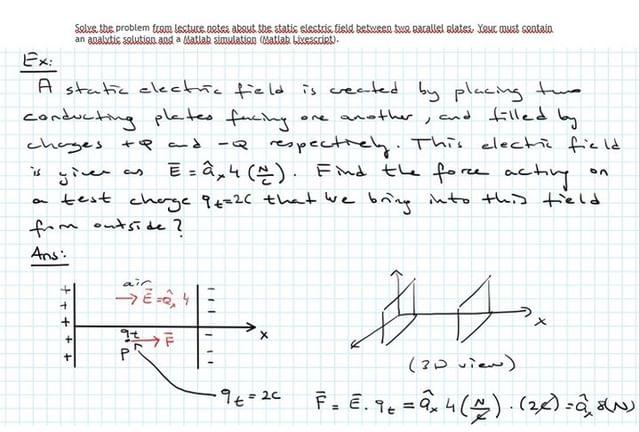 Solve the problem from lecture notes about the static electric field between two parallel plates. Your must contain
an analytic solution and a Matlab simulation (Matlab Livescript).
Ex:
A static electric field is created by placing two
conducting plates facing one another, and filled by
charges +Q and -Q respectively. This electric field
is given as E̅ = âₓ 4 (N/C). Find the force acting on
a test charge qt=2C that we bring into this field
from outside?
Ans:
air
→ E̅ = âₓ 4
x
qt → F̅
P
qt = 2C
x
(3D view)
F̅ = E̅ . qt = âₓ 4 (N/C) . (2C) = âₓ 8(N)